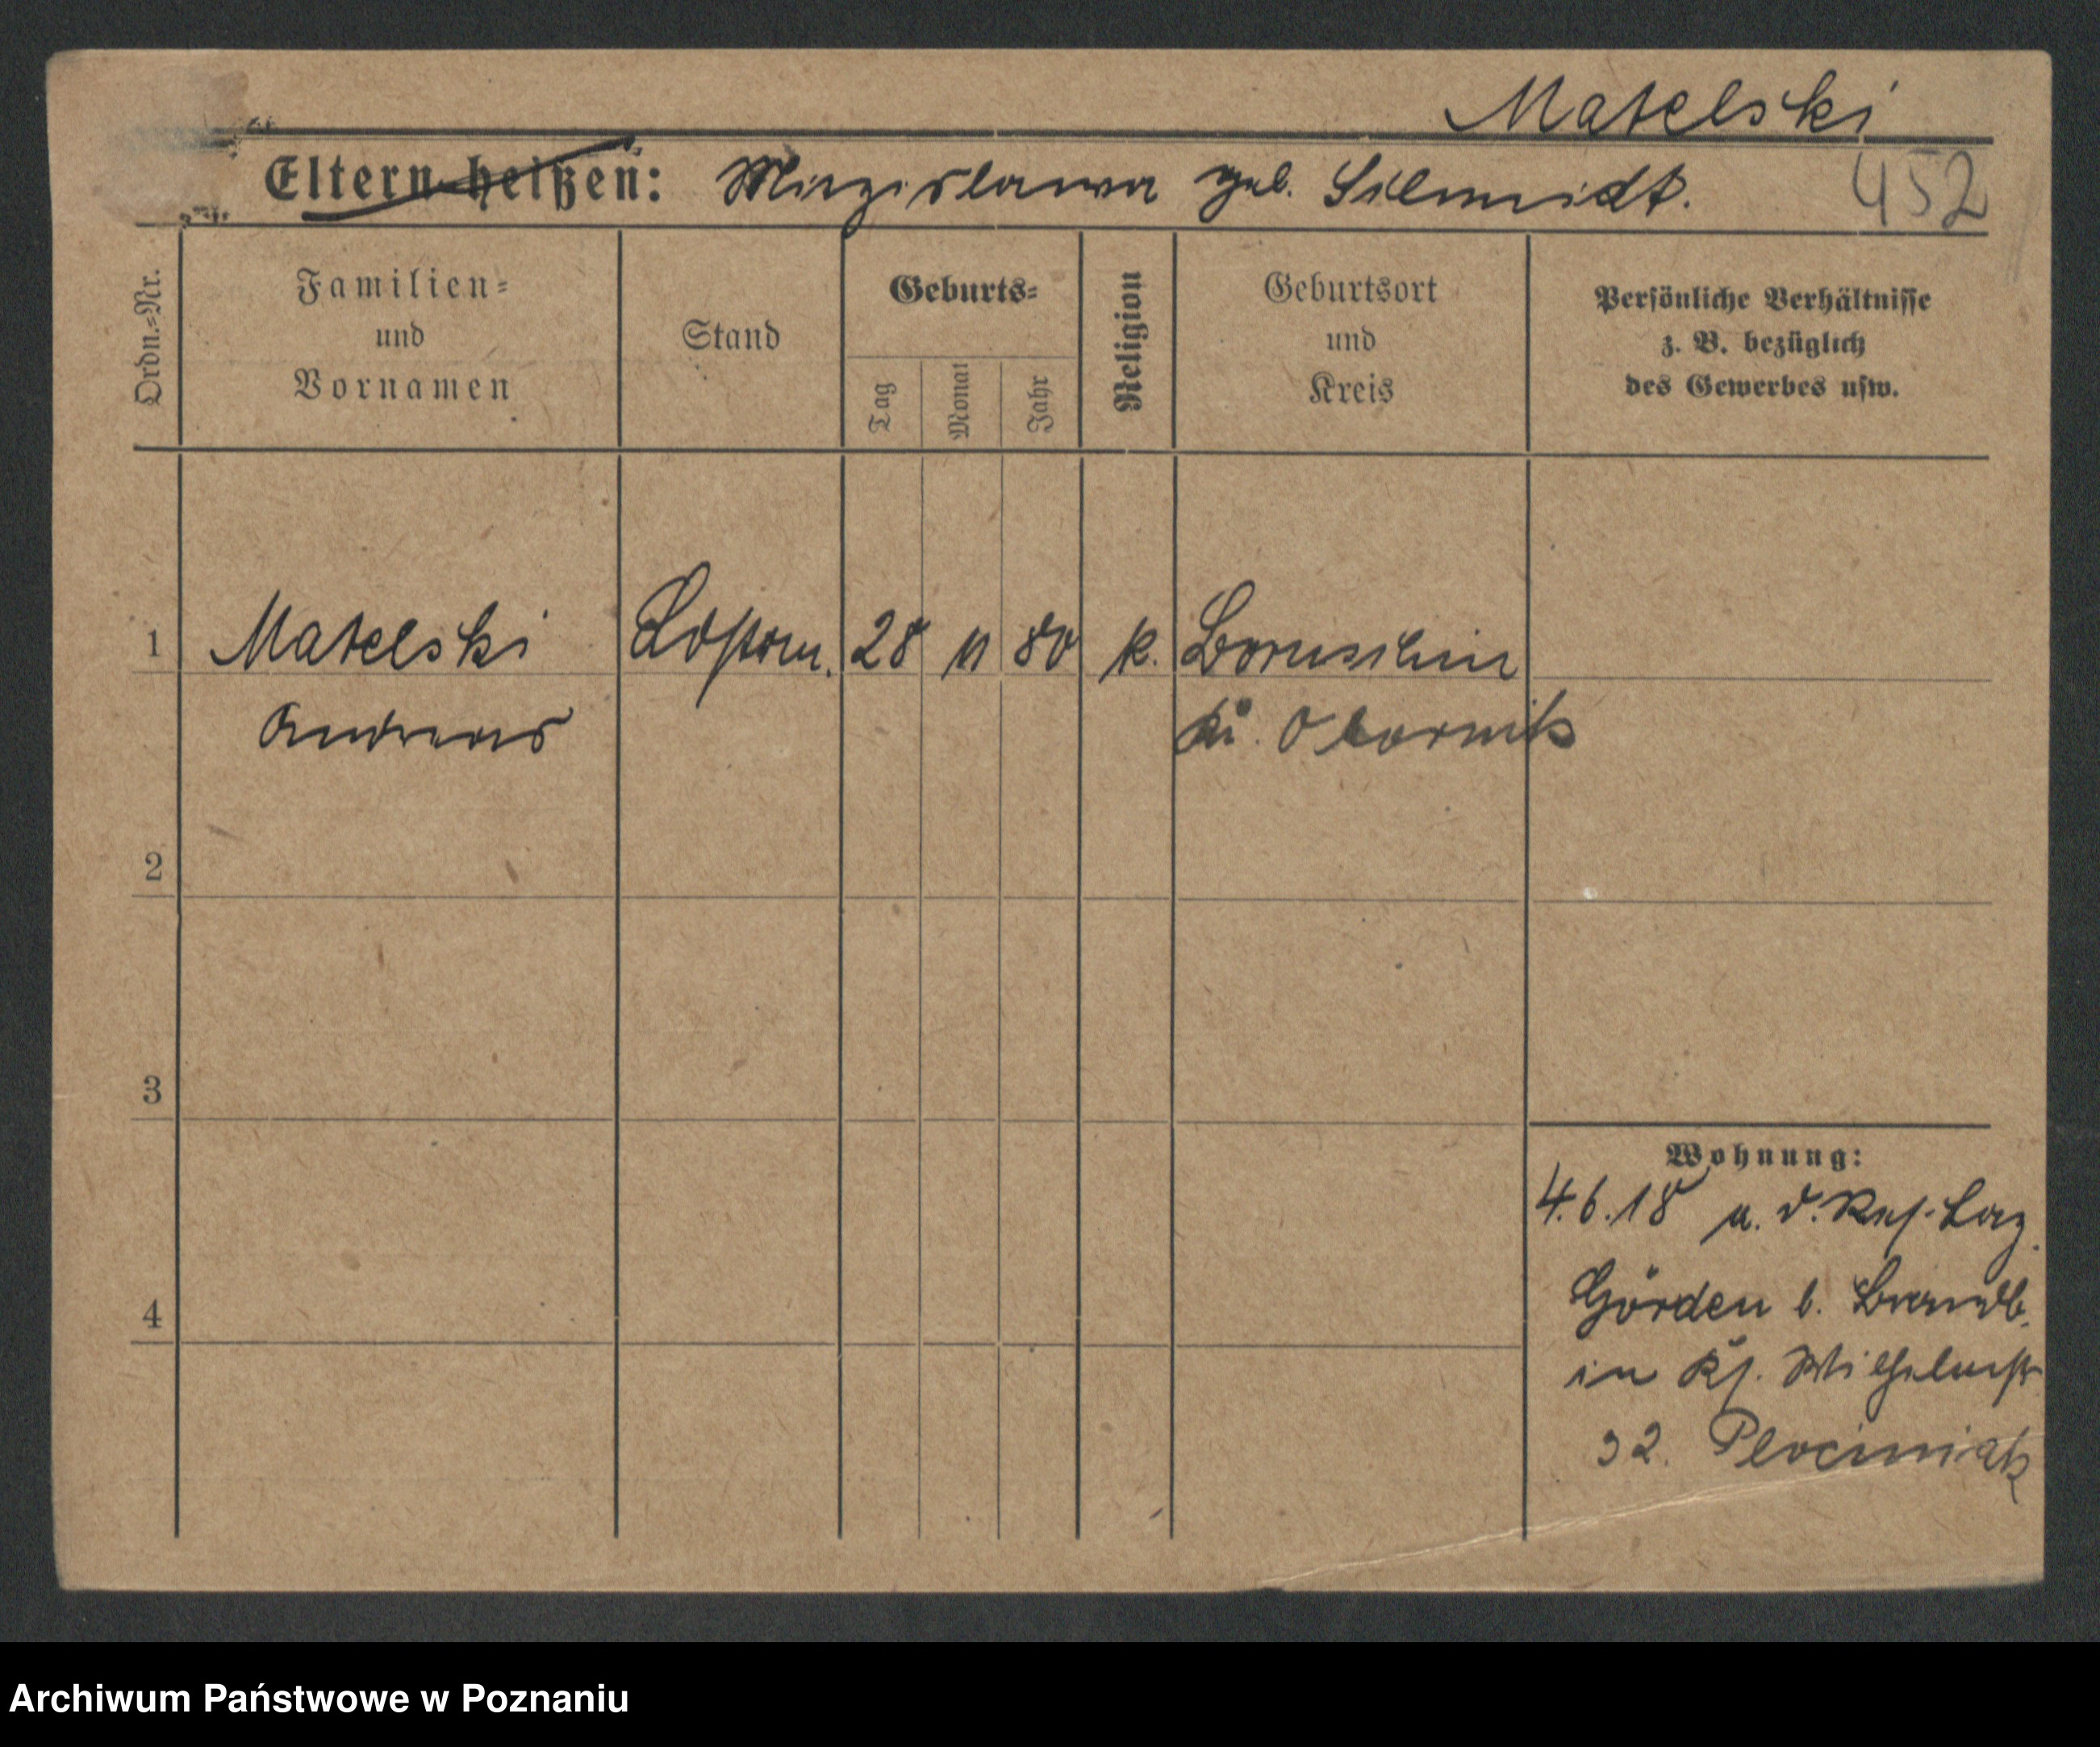 Matelski
Eltern heißen: Miezislawa geb. Schmidt.
452
Ordn.=Nr.
Familien=
und
Vornamen
Stand
Geburts=
Tag
Monat
Jahr
Religion
Geburtsort
und
Kreis
Persönliche Verhältnisse
z. B. bezüglich
des Gewerbes usw.
1 Matelski Ldstrm. 28 11 80 k. Boruschin
Andreas Kr. Obornik
2
3
4
Wohnung:
4.6.18 a. d. Res. Laz.
Görden b. Brandb.
in Ks. Wilhelmstr
32. Plociniak
Archiwum Państwowe w Poznaniu